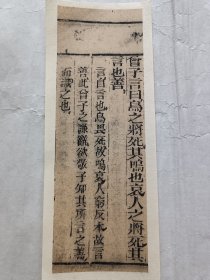 曾子言曰鳥之將死其鳴也哀人之將死其
言也善
言自言也鳥畏死故鳴哀人窮反本故言
善此曾子之謙辭欲敬子知其所言之善
而識之也